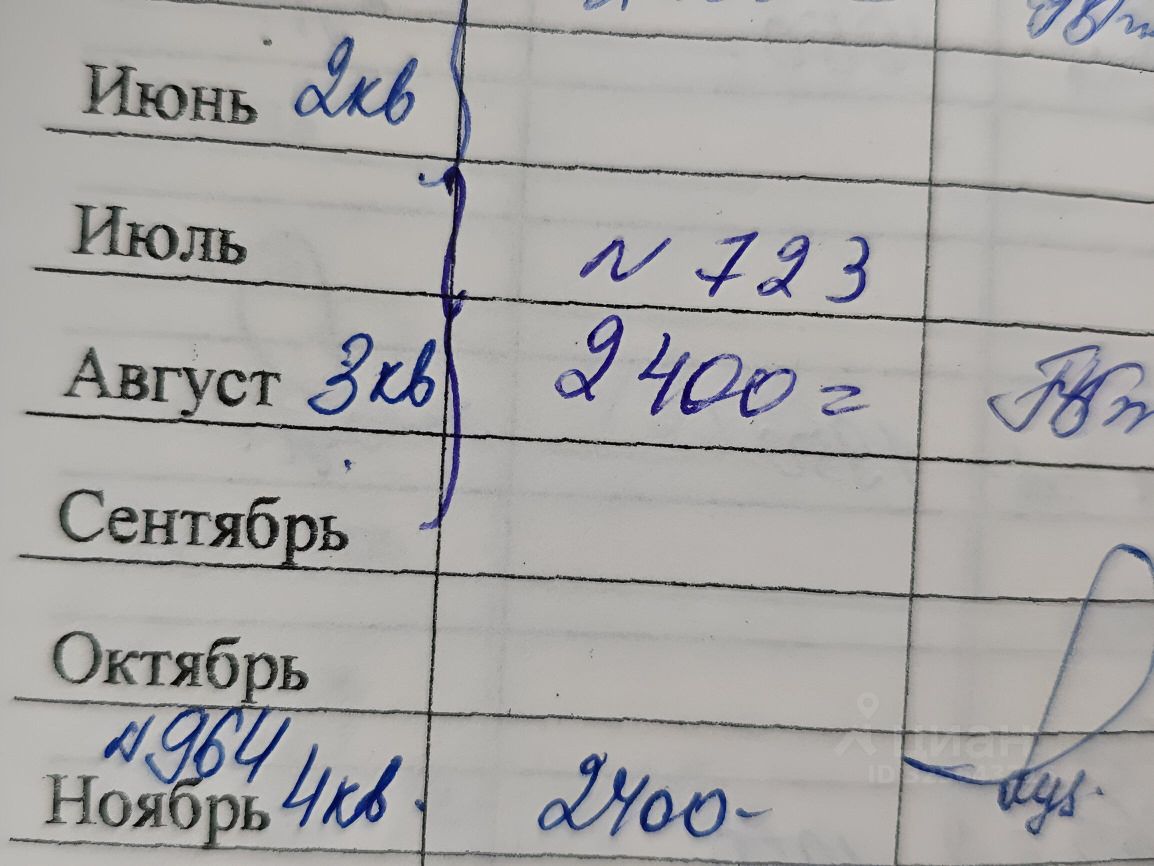 Июнь 2кв
Июль
N 723
Август 3кв 2400=
Сентябрь
Октябрь
N964
Ноябрь 4кв. 2400-
циан